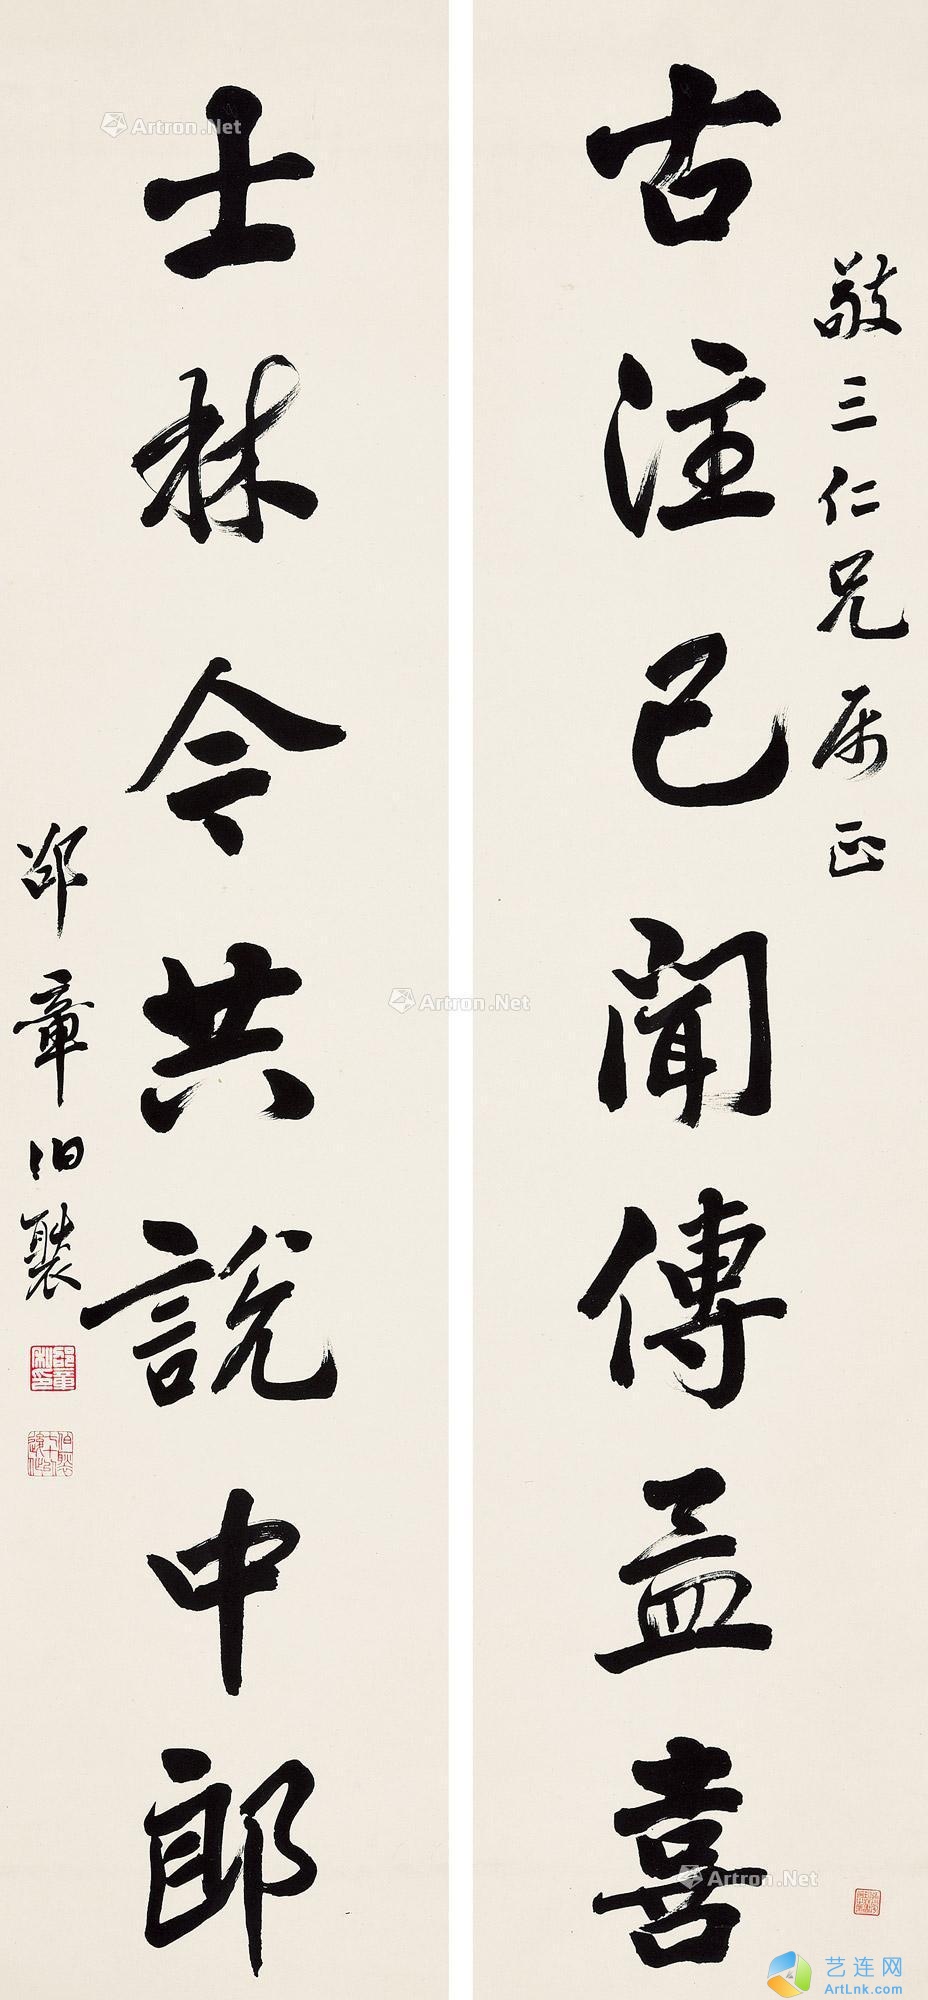 敬三仁兄属正
古注已闻傳益喜
士林令共說中郎
邵章伯褧
邵章私印
Artron.Net
Artron.Net
Artron.Net
艺连网
ArtLnk.com